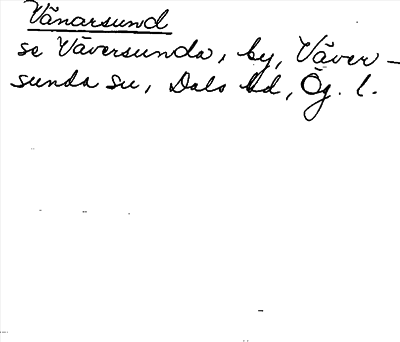 Vänarsund
se Väversunda, by, Väver-
sunda su, Dals hd, Ög. l.